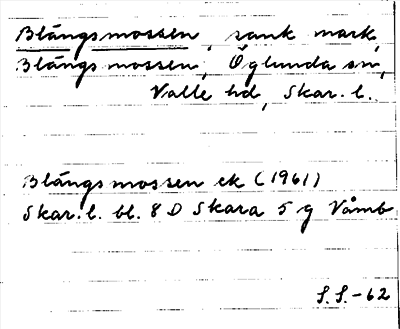 Blängsmossen, sank mark,
Blängsmossen, Öglunda sn,
Valle hd, Skar. l.
Blängsmossen ek (1961)
Skar. l. bl. 8 D Skara 5 g Våmb
S.S.-62